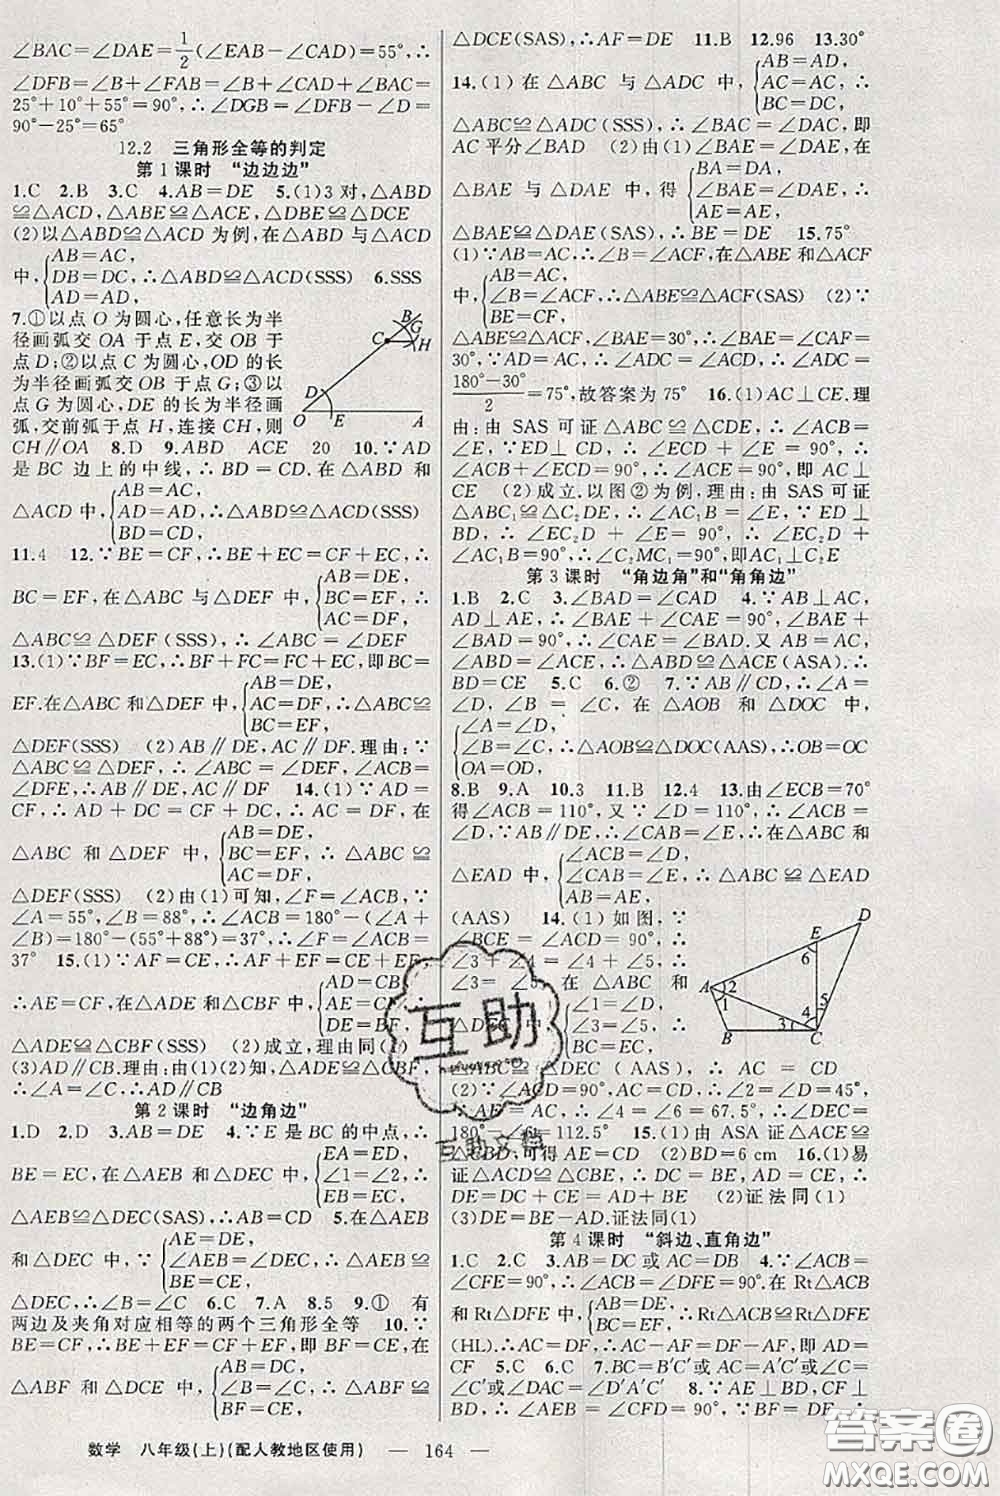 ∠BAC=∠DAE=1/2(∠EAB-∠CAD)=55°,∴
∠DFB=∠B+∠FAB=∠B+∠CAD+∠BAC=
25°+10°+55°=90°,∴∠DGB=∠DFB-∠D=
90°-25°=65°
12.2 三角形全等的判定
第1课时 “边边边”
1.C 2.B 3.C 4.AB=DE 5.(1)3对,△ABD
≌△ACD,△ABE≌△ACE,△DBE≌△DCE
(2)以△ABD≌△ACD为例,在△ABD与△ACD
中,{AB=AC, DB=DC, AD=AD, ∴△ABD≌△ACD(SSS) 6.SSS
7.①以点O为圆心,任意长为半
径画弧交OA于点E,交OB于
点D;②以点C为圆心,OD的长
为半径画弧交OB于点G;③以
点G为圆心,DE的长为半径画
弧,交前弧于点H,连接CH,则
B
C G H
D
O E A
CH∥OA 8.D 9.ABD ACE 20 10.∵AD
是BC边上的中线,∴BD=CD.在△ABD和
△ACD中,{AB=AC, AD=AD, BD=CD, ∴△ABD≌△ACD(SSS)
11.4 12.∵BE=CF,∴BE+EC=CF+EC,∴
BC=EF,在△ABC与△DEF中,{AB=DE, BC=EF, AC=DF, ∴
△ABC≌△DEF(SSS),∴∠ABC=∠DEF
13.(1)∵BF=EC,∴BF+FC=FC+EC,即BC=
EF.在△ABC和△DEF中,{AB=DE, AC=DF, BC=EF, ∴△ABC≌
△DEF(SSS) (2)AB∥DE,AC∥DF.理由:∵
△ABC≌△DEF,∴∠B=∠E,∠ACB=
∠DFE,∴AB∥DE,AC∥DF 14.(1)∵AD=
CF,∴AD+DC=CF+DC,∴AC=DF,在
△ABC和△DEF中,{AB=DE, BC=EF, AC=DF, ∴△ABC≌
△DEF(SSS) (2)由(1)可知,∠F=∠ACB,∵
∠A=55°,∠B=88°,∴∠ACB=180°-(∠A+
∠B)=180°-(55°+88°)=37°,∴∠F=∠ACB=
37° 15.(1)∵AF=CE,∴AF+EF=CE+EF,
∴AE=CF,在△ADE和△CBF中,{AD=CB, AE=CF, DE=BF, ∴
△ADE≌△CBF(SSS) (2)成立,理由同(1)
(3)AD∥CB.理由:由(1)(2)知,△ADE≌△CBF,
∴∠A=∠C,∴AD∥CB
第2课时 “边角边”
1.D 2.D 3.AB=DE 4.∵E是BC的中点,∴
BE=EC,在△ABE和△DEC中,{EA=ED, ∠AEB=∠DEC, EB=EC,
∴△AEB≌△DEC(SAS),∴AB=CD 5.在△AEB
和△DEC中,∵{AE=DE, ∠AEB=∠DEC, BE=CE, ∴△AEB≌
△DEC,∴∠B=∠C 6.C 7.A 8.5 9.① 有
两边及夹角对应相等的两个三角形全等 10.∵
BE=CF,∴BE+EF=CF+EF,即BF=CE,
在△ABF和△DCE中,{AB=DC, ∠B=∠C, BF=CE, ∴△ABF≌
△DCE(SAS),∴AF=DE 11.B 12.96 13.30°
14.(1)在△ABC与△ADC中,{AB=AD, AC=AC, BC=DC, ∴
△ABC≌△ADC(SSS),∴∠BAC=∠DAC,即
AC平分∠BAD (2)由(1)∠BAE=∠DAE,在
△BAE与△DAE中,得{BA=DA, ∠BAE=∠DAE, AE=AE, ∴
△BAE≌△DAE(SAS),∴BE=DE 15.75°
(1)∵AB=AC,∴∠B=∠ACF,在△ABE和△ACF
中,{AB=AC, ∠B=∠ACF, BE=CF, ∴△ABE≌△ACF(SAS) (2)∵
△ABE≌△ACF,∠BAE=30°,∴∠BAE=∠CAF=
30°,∵AD=AC,∴∠ADC=∠ACD,∴∠ADC=
180°-30°/2=75°,故答案为75° 16.(1)AC⊥CE.理
由:由SAS可证△ABC≌△CDE,∴∠ACB=
∠E,∵ED⊥CD,∴∠E+∠ECD=90°,∴
∠ACB+∠ECD=90°,∴∠ACE=90°,即AC⊥
CE (2)成立.以图②为例,理由:由SAS可证
△ABC₁≌△C₂DE,∴∠AC₁B=∠E,∵ED⊥
BD,∴∠EC₂D+∠E=90°,∴∠EC₂D+
∠AC₁B=90°,∴∠C₂MC₁=90°,即AC₁⊥C₂E
第3课时 “角边角”和“角角边”
1.B 2.C 3.∠BAD=∠CAD 4.∵AB⊥AC,
AD⊥AE,∴∠BAE+∠CAE=90°,∠BAE+
∠BAD=90°,∴∠CAE=∠BAD.又AB=AC,
∠ABD=∠ACE,∴△ABD≌△ACE(ASA).∴
BD=CE 5.C 6.② 7.∵AB∥CD,∴∠A=
∠D,∠B=∠C,在△AOB和△DOC中,
{∠A=∠D, ∠B=∠C, OA=OD, ∴△AOB≌△DOC(AAS),∴OB=OC
8.B 9.A 10.3 11.B 12.4 13.由∠ECB=70°
得∠ACB=110°,又∵∠D=110°,∴∠ACB=
∠D,∵AB∥DE,∴∠CAB=∠E,∴在△ABC和
△EAD中,{∠ACB=∠D, ∠CAB=∠E, AB=AE, ∴△ABC≌△EAD
(AAS) 14.(1)如图,∵
∠BCE=∠ACD=90°,∴
∠3+∠4=∠4+∠5,∴
∠3=∠5,在△ABC和
△DEC中,{∠1=∠D, ∠3=∠5, BC=EC, ∴
D
E
6
A 2
1
5
4
3
B C
△ABC≌△DEC(AAS),∴AC=CD
(2)∵∠ACD=90°,AC=CD,∴∠2=∠D=45°,
∵AE=AC,∴∠4=∠6=67.5°,∴∠DEC=
180°-∠6=112.5° 15.(1)由ASA证△ACE≌
△CBD,可得AE=CD (2)BD=6 cm 16.(1)易
证△ACD≌△CBE,∴DC=BE,AD=CE,∴
DE=DC+CE=AD+BE (2)证法同(1)
(3)DE=BE-AD.证法同(1)
第4课时 “斜边、直角边”
1.C 2.C 3.AB=DC或AC=DB 4.∵∠ACB=
∠CFE=90°,∴∠ACB=∠DFE=90°.在Rt△ACB
和Rt△DFE中,{AB=DE, BC=EF, ∴Rt△ACB≌Rt△DFE
(HL).∴AC=DF,∴AC-AF=DF-AF,即AD=
CF 5.C 6.C 7.BC=B′C′或AC=A′C′或∠BAC=
∠B′A′C′或∠DAC=∠D′A′C′ 8.∵AE⊥BD,CF⊥BD,
数学 八年级(上)(配人教地区使用) — 164 —
互助
互助文档
答案圈
MXQE.COM